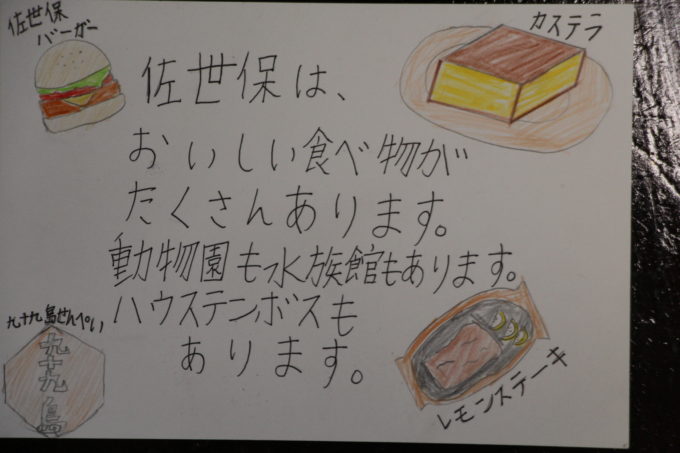 佐世保
バーガー
カステラ
佐世保は、
おいしい食べ物が
たくさんあります。
動物園も水族館もあります。
ハウステンボスも
あります。
九十九島せんぺい
九十九島
レモンステーキ